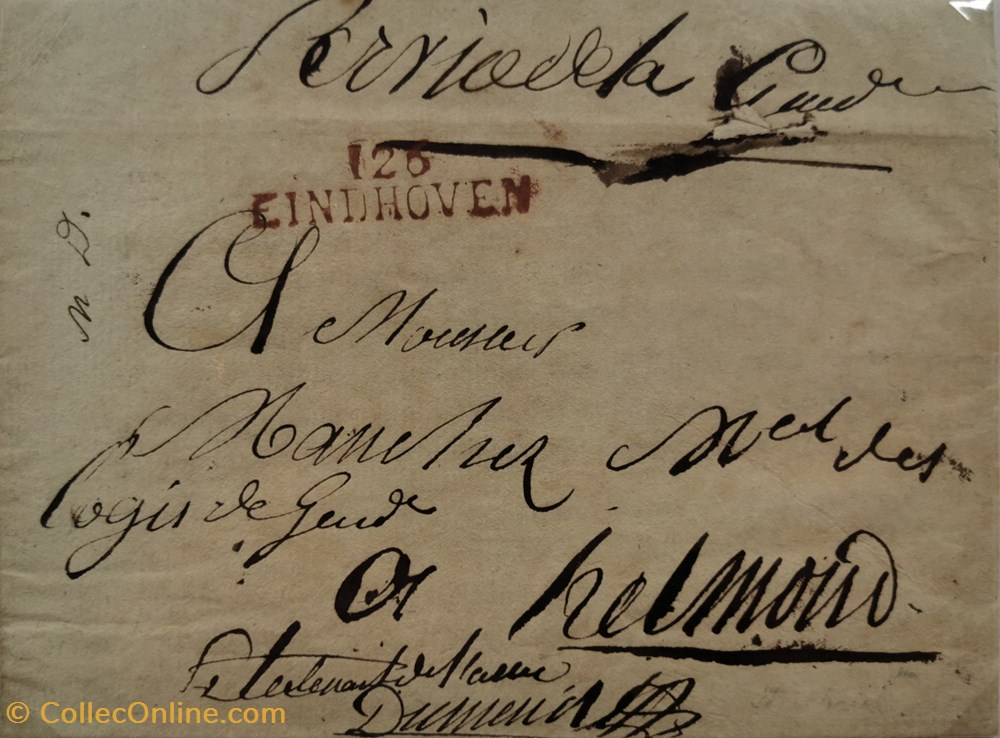 Service de la Gend
126
EINDHOVEN
M D.
A Monsieur
Manchez Mal des
logis de Gend
A helmond
Le Lieutenant de l'arme
Dumenil
© CollecOnline.com